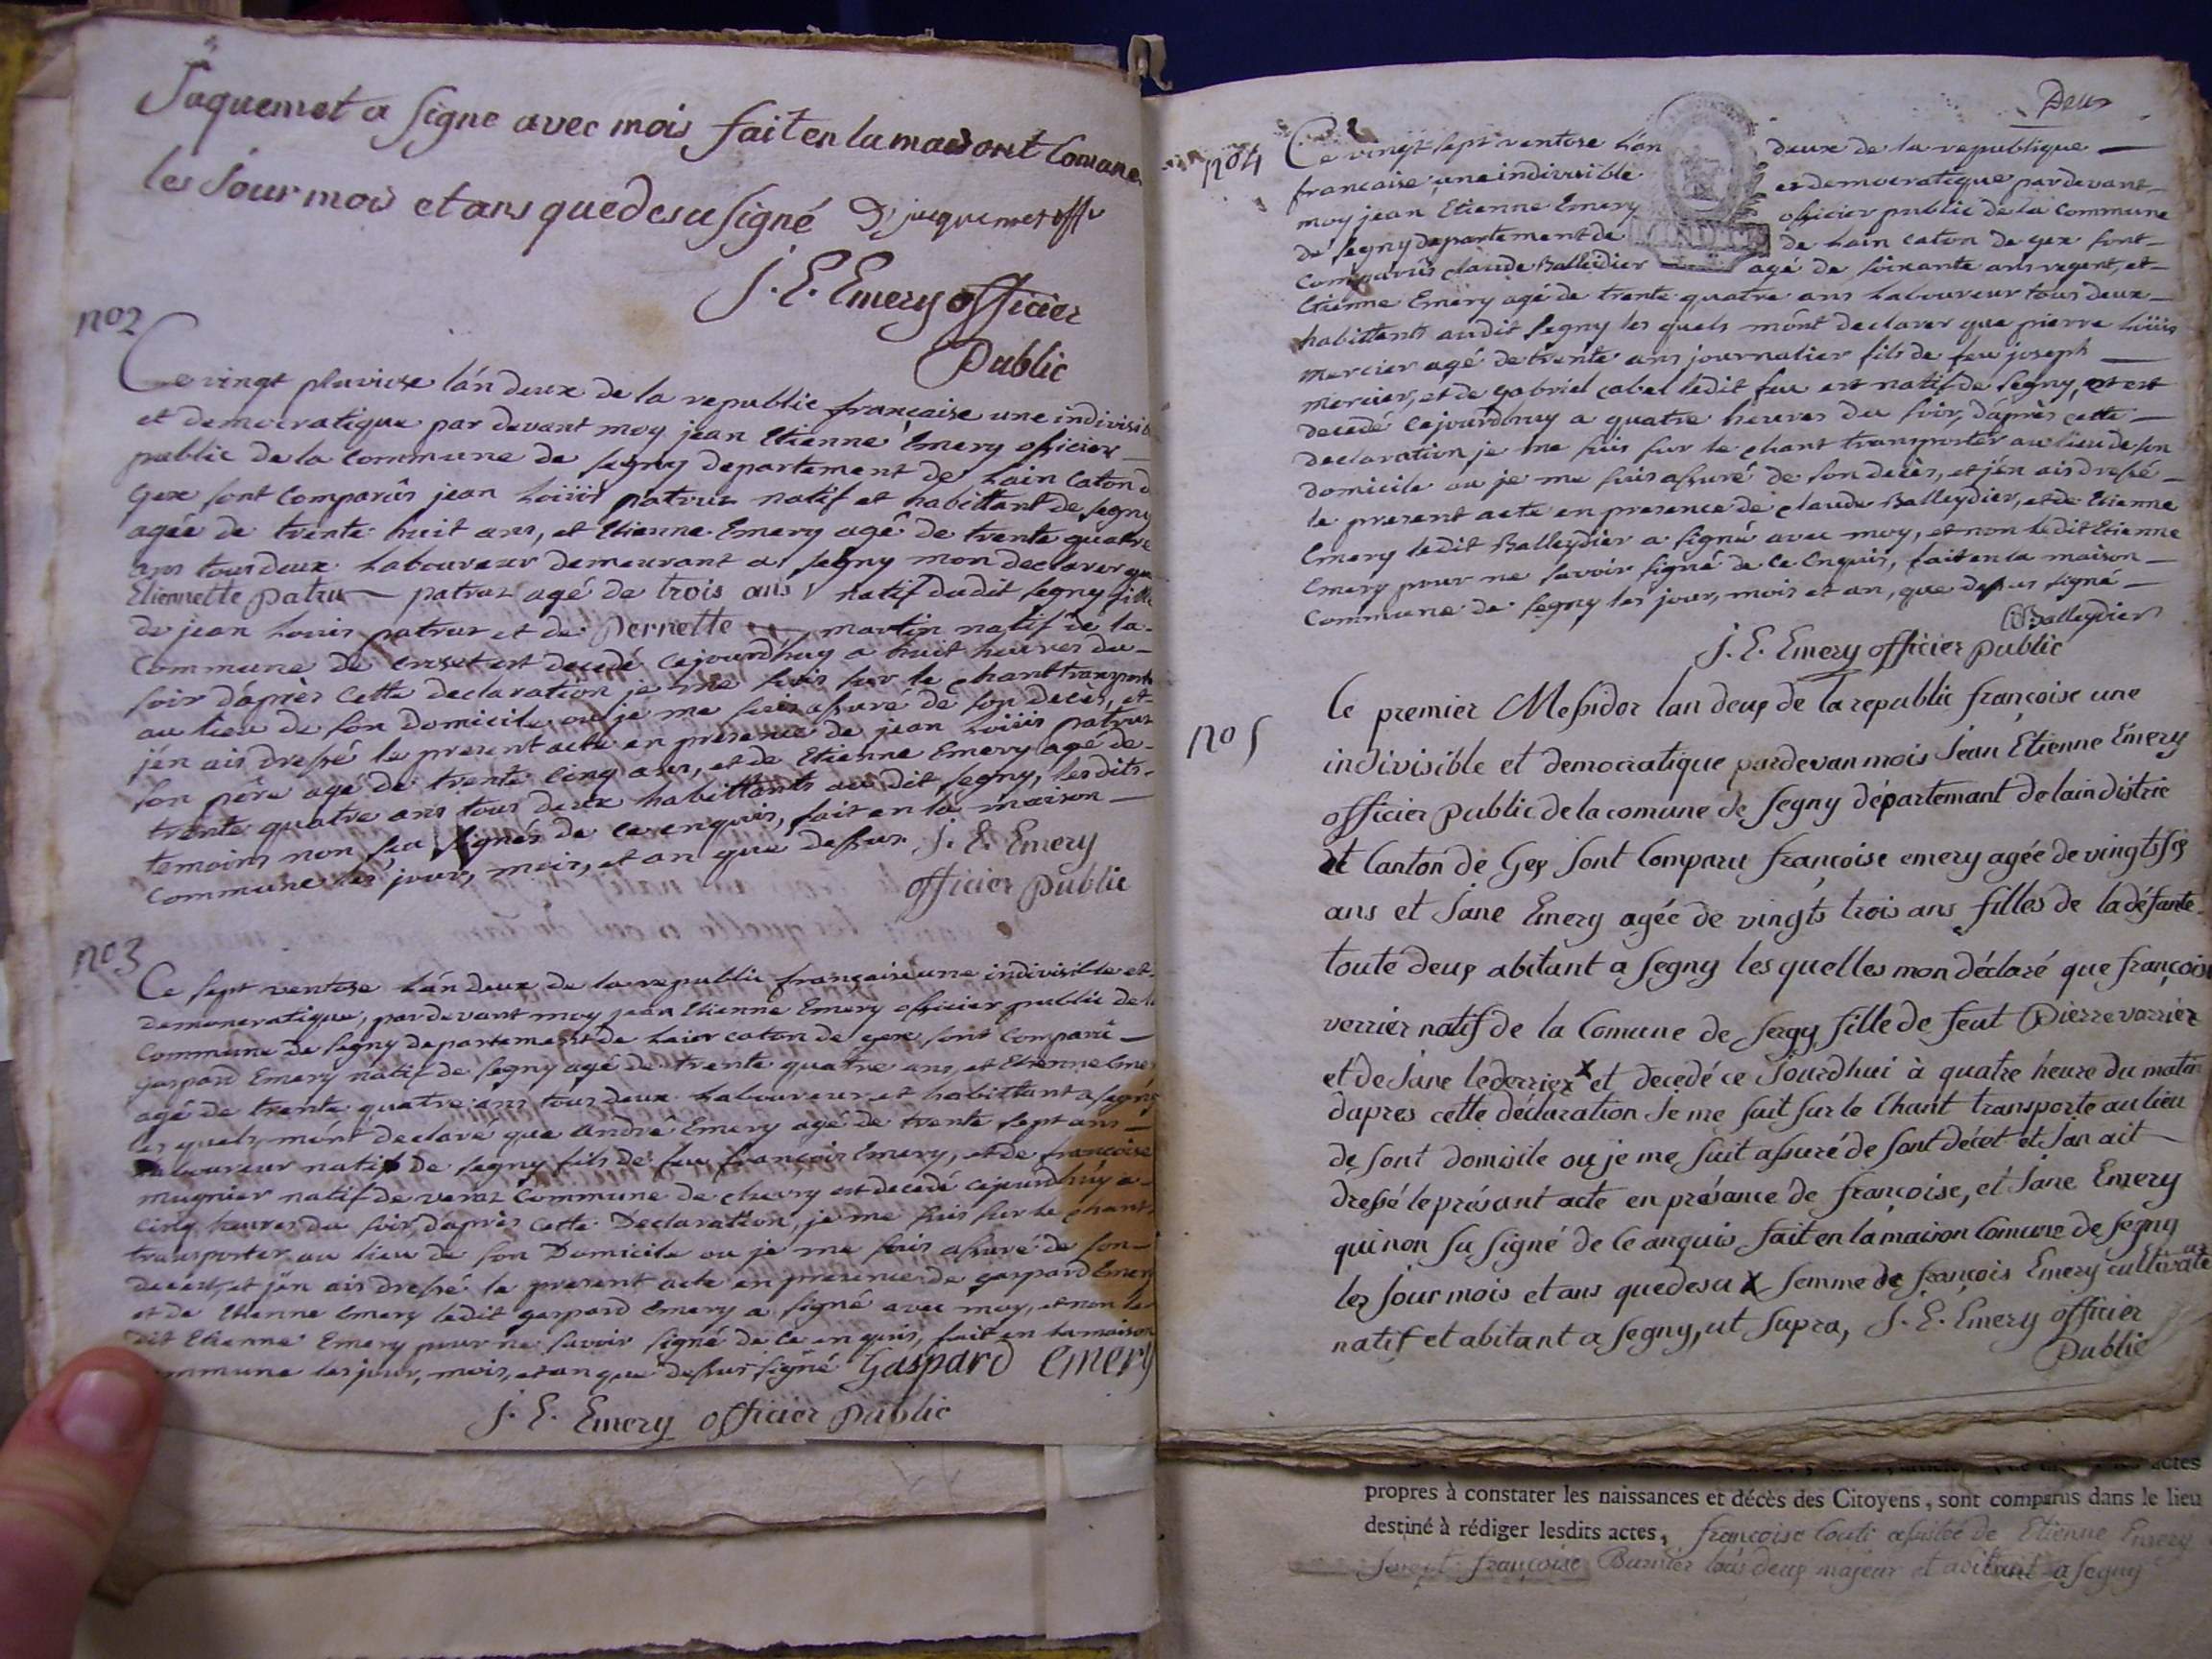 Jaquemet a signe avec mois fait en la maisont Comune
les Jour mois et ans quedesu signé D. jaquemet offr
J. E. Emery officier
Public
no 2
Ce vingt pluviose l'án deux de la republic française une indivisib
et democratique par devant moy jean Etienne Emery officier
public de la Commune de Segny departement de Lain Caton d
Gex sont Comparûs jean Loüis patruz natif et habittant de Segny
agée de trente huit ans, et Etienne Emery agé de trente quatre
ans tous deux laboureur demeurant a Segny mon declarer que
Etiennette Patru patruz agé de trois ans natif dudit Segny fille
de jean Louis patruz et de Pernette martin natif de la
Commune de Croset est decedé cejourd'huy a huit heures du
soir d'après cette declaration je me suis sur le chant transporté
au lieu de son domicile ou je me suis assuré de son decès, et
j'én ais dressé le present acte en presence de jean Loüis patruz
son père agé de trente Cinq ans, et de Etienne Emery agé de
trente quatre ans tous deux habittants audit Segny, lesdits
temoins non seu Signés de ce enquis, fait en la maison
Commune les jours, mois, et an que dessus J. E. Emery
officier public
no 3
Ce sept ventose l'án deux de la republic française une indivisible et
demoncratique, pardevant moy jean Etienne Emery officier public de l
Commune de Segny departement de Lain caton de gex sont Comparû
gaspard Emery natif de Segny agé de trente quatre ans, et Etienne Eme
agé de trente quatre ans tous deux laboureur et habittant a Segny
les quels m'ént declaré que andré Emery agé de trente sept ans
Laboureur natif de Segny fils de feu françois Emery, et de françoise
mugnier natif de veraz Commune de chevry est decedé cejourd'húy a
Cinq heures du soir, d'après cette Declaration, je me suis sur le chant
transporter au lieu de son Domicile ou je me suis assuré de son
decès, et j'én ais dressé le present acte en presence de gaspard Emery
et de Etienne Emery ledit gaspard Emery a signé avec moy, et non le
dit Etienne Emery pour ne savoir signé de Ce enquis, fait en la maison
mmune les jour, mois, et an que dessus signé Gaspard Emery
J. E. Emery officier public
Deux
no 4
Ce vingt sept ventose l'án deux de la republique
francaise une indivisible et democratique pardevant
moy jean Etienne Emery officier public de la Commune
de Segny departement de de Lain caton de gex sont
Comparûs claude Balleidier agé de soixante ans regent, et
Etienne Emery agé de trente quatre ans laboureur tous deux
habittants audit Segny les quels mônt declarer que pierre Loüis
mercier agé de trente ans journalier fils de feu joseph
mercier, et de gabriel cabel ledit feu est natif de Segny, et est
decedé cejourdhuy a quatre heures du soir, d'après cette
declaration je me suis sur le chant transporter au lieu de son
domicile ou je me suis assuré de son decès, et j'én ais dressé
le present acte en presence de claude Balleydier, et de Etienne
Emery ledit Balleydier a signé avec moy, et non ledit Etienne
Emery pour ne savoir signé de Ce Enquis, fait en la maison
Commune de Segny les jour, mois et an, que dessus signé
Balleydier
J. E. Emery officier public
no 5
Ce premier Messidor lan deux de la republic françoise une
indivisible et democratique pardevan mois Jean Etienne Emery
officier Public de la comune de Segny département de lain distric
et Canton de Gex sont Comparu françoise emery agée de vingts sep
ans et Jane Emery agée de vingts trois ans filles de la défunte
toute deux abitant a Segny les quelles mon déclaré que françois
verrier natif de la Comune de Sergy fille de feut Pierre varrier
et de Jane lederrier x et decedé ce Jourdhui à quatre heure du matin
dapres cette déclaration Je me suit sur le Chant transporte au lieu
de sont domicile ou je me suit assuré de sont décet et Jan ait
dressé le présant acte en présance de françoise, et Jane Emery
qui non su signé de Ce anquis fait en la maison Comune de Segny
les Jour mois et ans quedesu x femme de françois Emery cultivateur
natif et abitant a Segny, ut supra, J. E. Emery officier
Public
propres à constater les naissances et décès des Citoyens, sont comparus dans le lieu
destiné à rédiger lesdits actes, françoise Couti assistée de Etienne Emery
françoise Burnier tous deux majeur et abitant a Segny